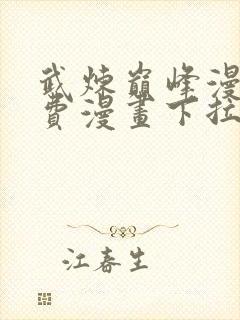 武炼巅峰漫
费漫画下拉
江春生